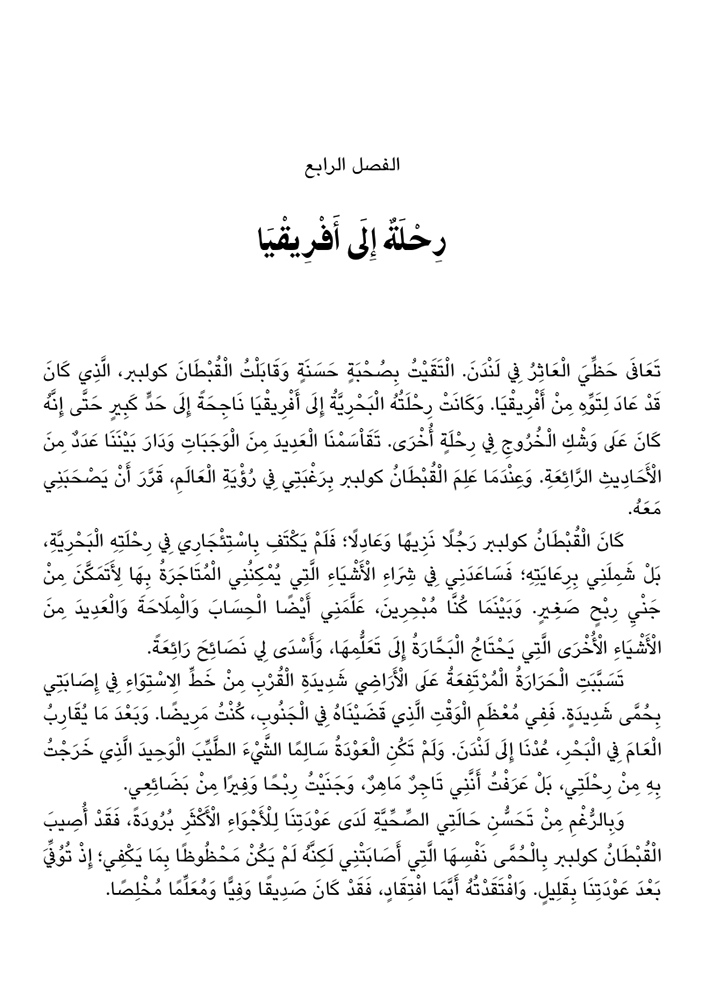 الفصل الرابع
رِحْلَةٌ إِلَى أَفْرِيقْيَا
تَعَافَى حَظِّيَ الْعَاثِرُ فِي لَنْدَنَ. الْتَقَيْتُ بِصُحْبَةٍ حَسَنَةٍ وَقَابَلْتُ الْقُبْطَانَ كولببر، الَّذِي كَانَ
قَدْ عَادَ لِتَوِّهِ مِنْ أَفْرِيقْيَا. وَكَانَتْ رِحْلَتُهُ الْبَحْرِيَّةُ إِلَى أَفْرِيقْيَا نَاجِحَةً إِلَى حَدٍّ كَبِيرٍ حَتَّى إِنَّهُ
كَانَ عَلَى وَشْكِ الْخُرُوجِ فِي رِحْلَةٍ أُخْرَى. تَقَاسَمْنَا الْعَدِيدَ مِنَ الْوَجَبَاتِ وَدَارَ بَيْنَنَا عَدَدٌ مِنَ
الْأَحَادِيثِ الرَّائِعَةِ. وَعِنْدَمَا عَلِمَ الْقُبْطَانُ كولببر بِرَغْبَتِي فِي رُؤْيَةِ الْعَالَمِ، قَرَّرَ أَنْ يَصْحَبَنِي
مَعَهُ.
كَانَ الْقُبْطَانُ كولببر رَجُلًا نَزِيهًا وَعَادِلًا؛ فَلَمْ يَكْتَفِ بِاسْتِئْجَارِي فِي رِحْلَتِهِ الْبَحْرِيَّةِ،
بَلْ شَمِلَنِي بِرِعَايَتِهِ؛ فَسَاعَدَنِي فِي شِرَاءِ الْأَشْيَاءِ الَّتِي يُمْكِنُنِي الْمُتَاجَرَةُ بِهَا لِأَتَمَكَّنَ مِنْ
جَنْيِ رِبْحٍ صَغِيرٍ. وَبَيْنَمَا كُنَّا مُبْحِرِينَ، عَلَّمَنِي أَيْضًا الْحِسَابَ وَالْمِلَاحَةَ وَالْعَدِيدَ مِنَ
الْأَشْيَاءِ الْأُخْرَى الَّتِي يَحْتَاجُ الْبَحَّارَةُ إِلَى تَعَلُّمِهَا، وَأَسْدَى لِي نَصَائِحَ رَائِعَةً.
تَسَبَّبَتِ الْحَرَارَةُ الْمُرْتَفِعَةُ عَلَى الْأَرَاضِي شَدِيدَةِ الْقُرْبِ مِنْ خَطِّ الِاسْتِوَاءِ فِي إِصَابَتِي
بِحُمَّى شَدِيدَةٍ. فَفِي مُعْظَمِ الْوَقْتِ الَّذِي قَضَيْنَاهُ فِي الْجَنُوبِ، كُنْتُ مَرِيضًا. وَبَعْدَ مَا يُقَارِبُ
الْعَامَ فِي الْبَحْرِ، عُدْنَا إِلَى لَنْدَنَ. وَلَمْ تَكُنِ الْعَوْدَةُ سَالِمًا الشَّيْءَ الطَّيِّبَ الْوَحِيدَ الَّذِي خَرَجْتُ
بِهِ مِنْ رِحْلَتِي، بَلْ عَرَفْتُ أَنَّنِي تَاجِرٌ مَاهِرٌ، وَجَنَيْتُ رِبْحًا وَفِيرًا مِنْ بَضَائِعِي.
وَبِالرُّغْمِ مِنْ تَحَسُّنِ حَالَتِي الصِّحِّيَّةِ لَدَى عَوْدَتِنَا لِلْأَجْوَاءِ الْأَكْثَرِ بُرُودَةً، فَقَدْ أُصِيبَ
الْقُبْطَانُ كولببر بِالْحُمَّى نَفْسِهَا الَّتِي أَصَابَتْنِي لَكِنَّهُ لَمْ يَكُنْ مَحْظُوظًا بِمَا يَكْفِي؛ إِذْ تُوُفِّيَ
بَعْدَ عَوْدَتِنَا بِقَلِيلٍ. وَافْتَقَدْتُهُ أَيَّمَا افْتِقَادٍ، فَقَدْ كَانَ صَدِيقًا وَفِيًّا وَمُعَلِّمًا مُخْلِصًا.